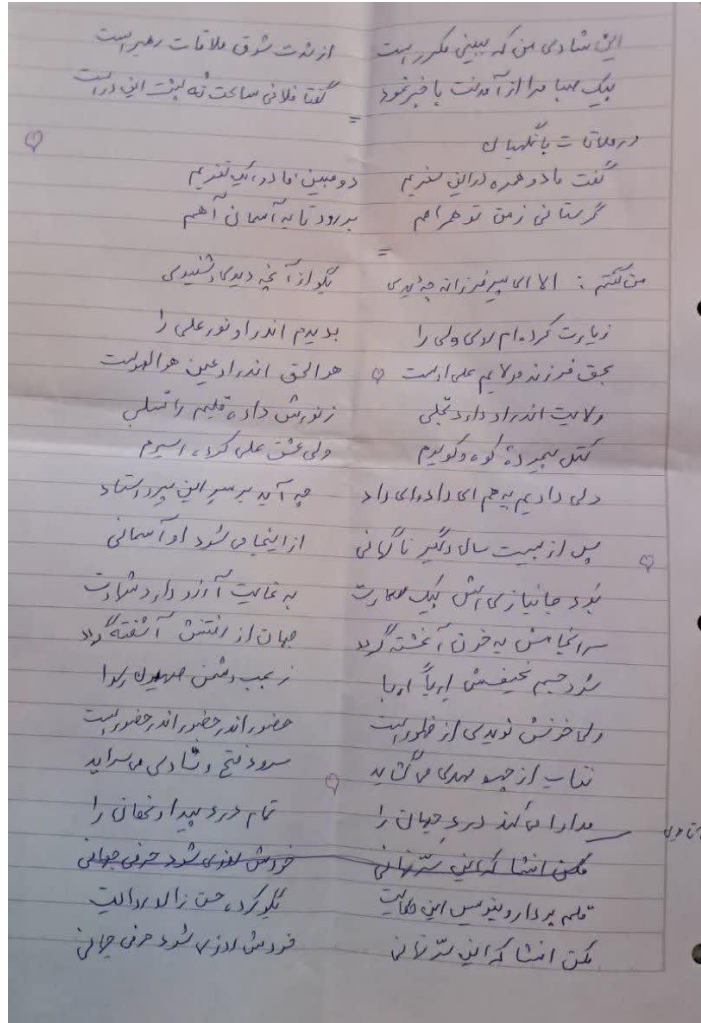 این شادی من که ببینی مکرر است از شدت شوق ملاقات رهبر است
پیک صبا مرا از آمدنت با خبر نمود گفتا فلانی ساعت نه پشت این در است
=
در ملاقات با نگهبان
گفت ما دو همره در این سفریم دو مبین ما در یک نفریم
گر ستانی ز من تو همراهم بر رود تا به آسمان آهم
=
من گفتم : الا ای پیر فرزانه چه دیدی بگو از آنچه دیدی و شنیدی
زیارت کرده ام روی ولی را بدیدم اندر او نور علی را
بحق فرزند مولایم علی است هو الحق اندر او عین هو الهوست
ولایت اندر او دارد تجلی ز نورش داده قلبم را تسلی
کتل پیموده کوه و کویرم ولی عشق علی کرده اسیرم
دلی دادیم به هم ای داد ای داد چه آید بر سر این پیر استاد
پس از بیست سال دیگر ناگهانی از اینجا می شود او آسمانی
بود جانبازی اش یک مهارت به غایت آرزو دارد شهادت
سرانجامش به خون آغشته گردد جهان از رفتنش آشفته گردد
شود جسم نحیفش اربا اربا ز بمب دشمن صهیون رسوا
ولی خونش نویدی از ظهور است حضور اندر حضور اندر حضور است
نقاب از چهره مهدی می گشاید سرود فتح و شادی می سراید
مداوا می کند درد جهان را تمام درد پیدا و نهان را
مکن افشا که این سرّ نهانی خروش روزی شود حرفی جهانی
قلم بردار و بنویس این حکایت بگو کرده حق
مکن افشا که این سرّ نهانی خودش روزی شود حرفی جهانی